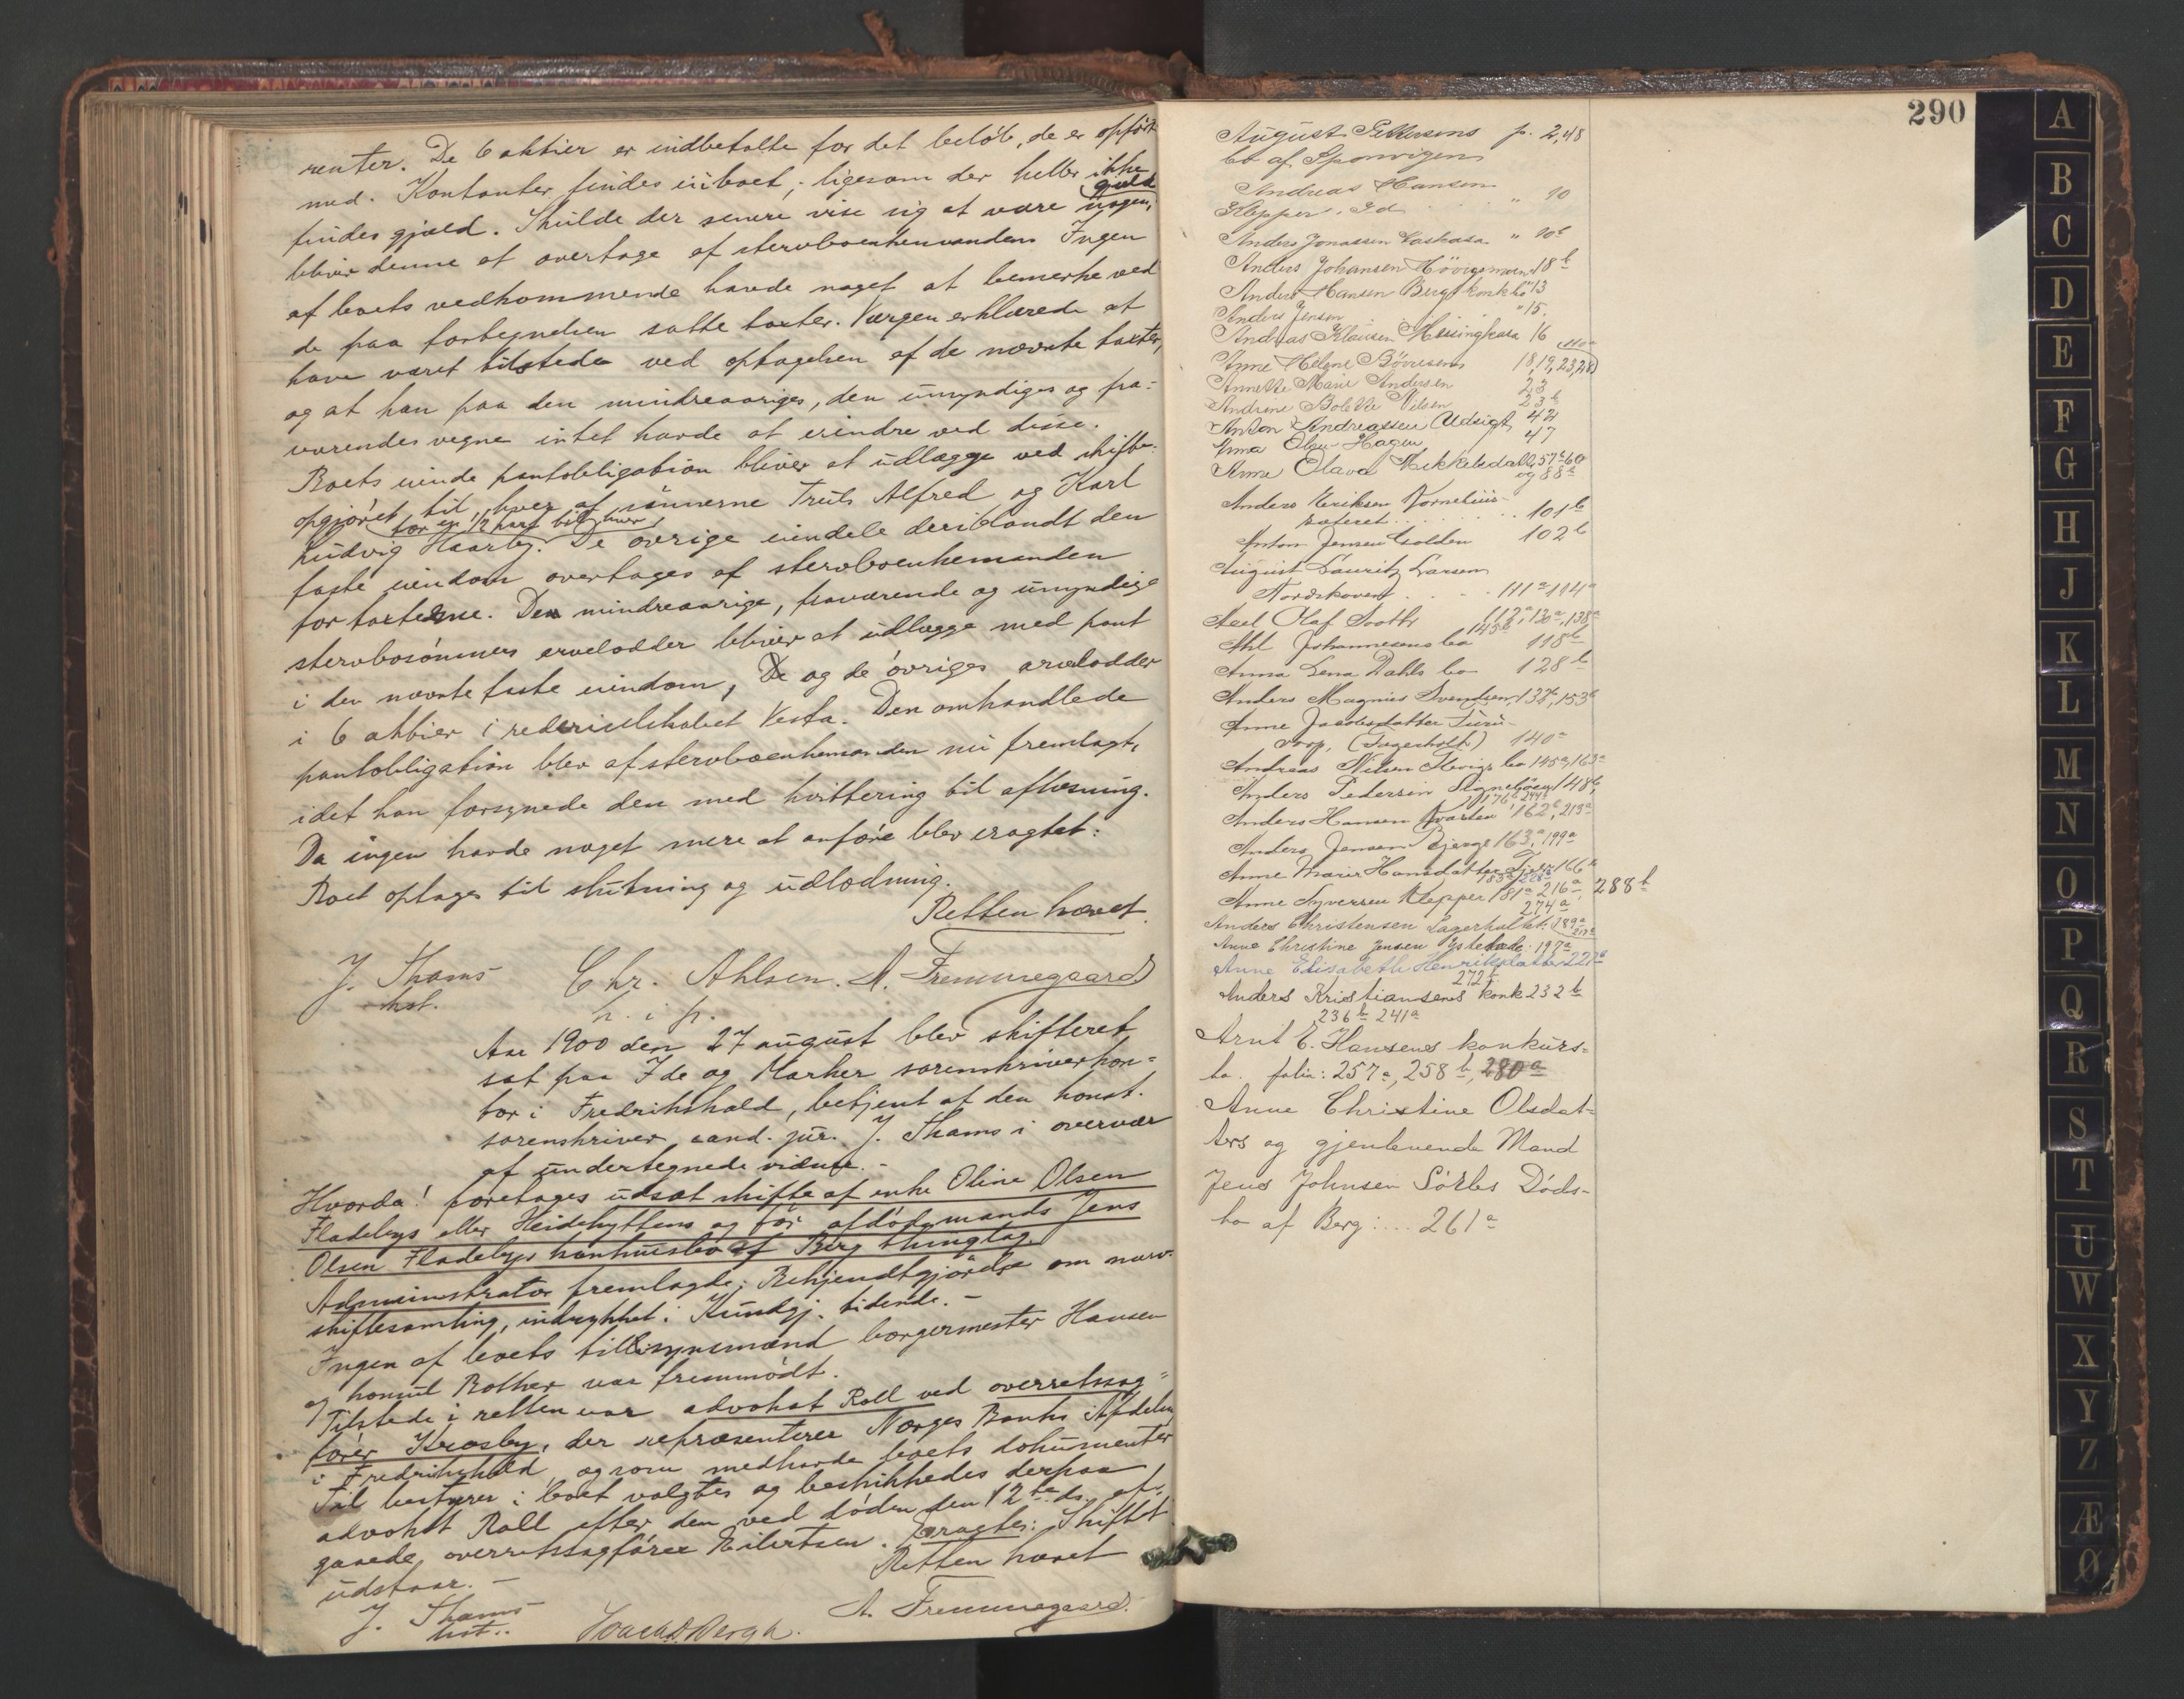 renter. De 6 aktier er indbetalte for det beløb, de er opført
med. Kontanter findes ei i boet, ligesom der heller ikke
findes gjæld. Skulde der senere vise sig at være nogen gjæld
bliver denne at overtage af stervboenkemanden. Ingen
af boets vedkommende havde noget at bemerke ved
de paa fortegnelsen satte takster. Værgen erklærede at
have været tilstede ved optagelsen af de nævnte takster,
og at han paa den mindreaariges, den umyndiges og fra-
værendes vegne intet havde at erindre ved disse.
Boets eiende pantobligation bliver at udlægge ved skifte-
opgjøret til hver af sønnerne Truls Alfred og Karl
Ludvig Haarby, for en 1/2 part til hver. De øvrige eiendele deriblandt den
faste eiendom overtages af stervboenkemanden
for taksterne. Den mindreaarige, fraværende og umyndige
stervbosønners arvelodder bliver at udlægge med pant
i den nævnte faste eiendom, De og de øvriges arvelodder
i 6 aktier i rederiselskabet Vesta. Den omhandlede
pantobligation blev af stervboenkemanden nu fremlagt,
idet han forsynede den med kvittering til aflæsning.
Da ingen havde noget mere at anføre blev eragtet:
Boet optages til slutning og udlodning.
Retten hævet.
J. Thams Chr. Ahlsen. A. Fremmegaard
kst. h. i p.
Aar 1900 den 27 august blev skifteret
sat paa Ide og Marker sorenskriverkon-
tor i Fredrikshald, betjent af den konst.
sorenskriver, cand. jur. J. Thams i overvær
af undertegnede vidne. -
Hvorda! foretages udsat skifte af enke Oline Olsen
Fladebys eller Heidehyttens og før afdøde mands Jens
Olsen Fladebys konkursbo af Berg thinglag.
Administrator fremlagde: Bekjendtgjørelse om nærv.
skiftesamling, indrykket i Kundgj. tidende. -
Ingen af boets tillsynsmænd borgermester Hansen
og konsul Rother var fremmødt.
Tilstede i retten var advokat Roll ved overretssag-
fører Krosby, der repræsenterer Norges Banks Afdeling
i Fredrikshald, og som medhavde boets dokumenter
Til bestyrer i boet valgtes og beskikkedes derpaa
advokat Roll efter den ved døden den 12te ds. af-
gaaede overretssagfører Eilertsen. Eragtes: Skiftet
udstaar. - Retten hævet
J. Thams A. Fremmegaard.
kst..
290
August Pettersens p. 2,48
bo af Sponvigen
Andreas Hansen
Klepper. Id " 10
Anders Jonassen " 10b
Anders Johansen 18b
Anders Hansen Berg konkbo "13
Anders Jensen "15.
Andreas Klausen 16
110a
Anne Helene Børresens 18,19,23,28
Annette Marie Andersen 23
Andrine Bolette Nilsen 23b
Anton Andreassen Udsigt 42
Anna Olsen Hagen 47
Anne Olava Mikkelsdatter 57a 60
og 88a
Anders Eriksen Kornelius-
røderet 101b
Anton Jensen Holden 102b
August Lauritz Larsen
Nordskoven 111a 114a
Axel Olaf 112a, 120a, 138a
145b
Ahl Johannesens bo 118b
Anna Lena Dahls bo 128b
Anders Magnus Svendsen, 137a, 153b
Anne Jacobsdatter
torp, (Fagerholt) 140a
Andreas Nilsen bo 145a, 163a
Anders Pedersen 148b,
176b 244b
Anders Hansen 162b, 213a
Anders Jensen Bjerge 163a, 199a
Anne Marie Hansdatter 166a
183a 228a
Anne Syversen Klepper 181a 216a, 288b
274a
Anders Christensen Lagerholtet. 189a
217a
Anne Christine Jensen Ystehede. 197a
Anne Elisabeth Henriksdatter 221a
272b
Anders Kristiansens konk 232b
236b 241a
Arnt E. Hansens konkurs-
bo. folio: 257a, 258b, 280a
Anne Christine Olsdat-
ters og gjenlevende Mand
Jens Johnsen Sørlis Døds-
bo af Berg: .... 261a
A
B
C
D
E
F
G
H
J
K
L
M
N
O
P
Q
R
S
T
U
W
X
Y
Z
Æ
Ø